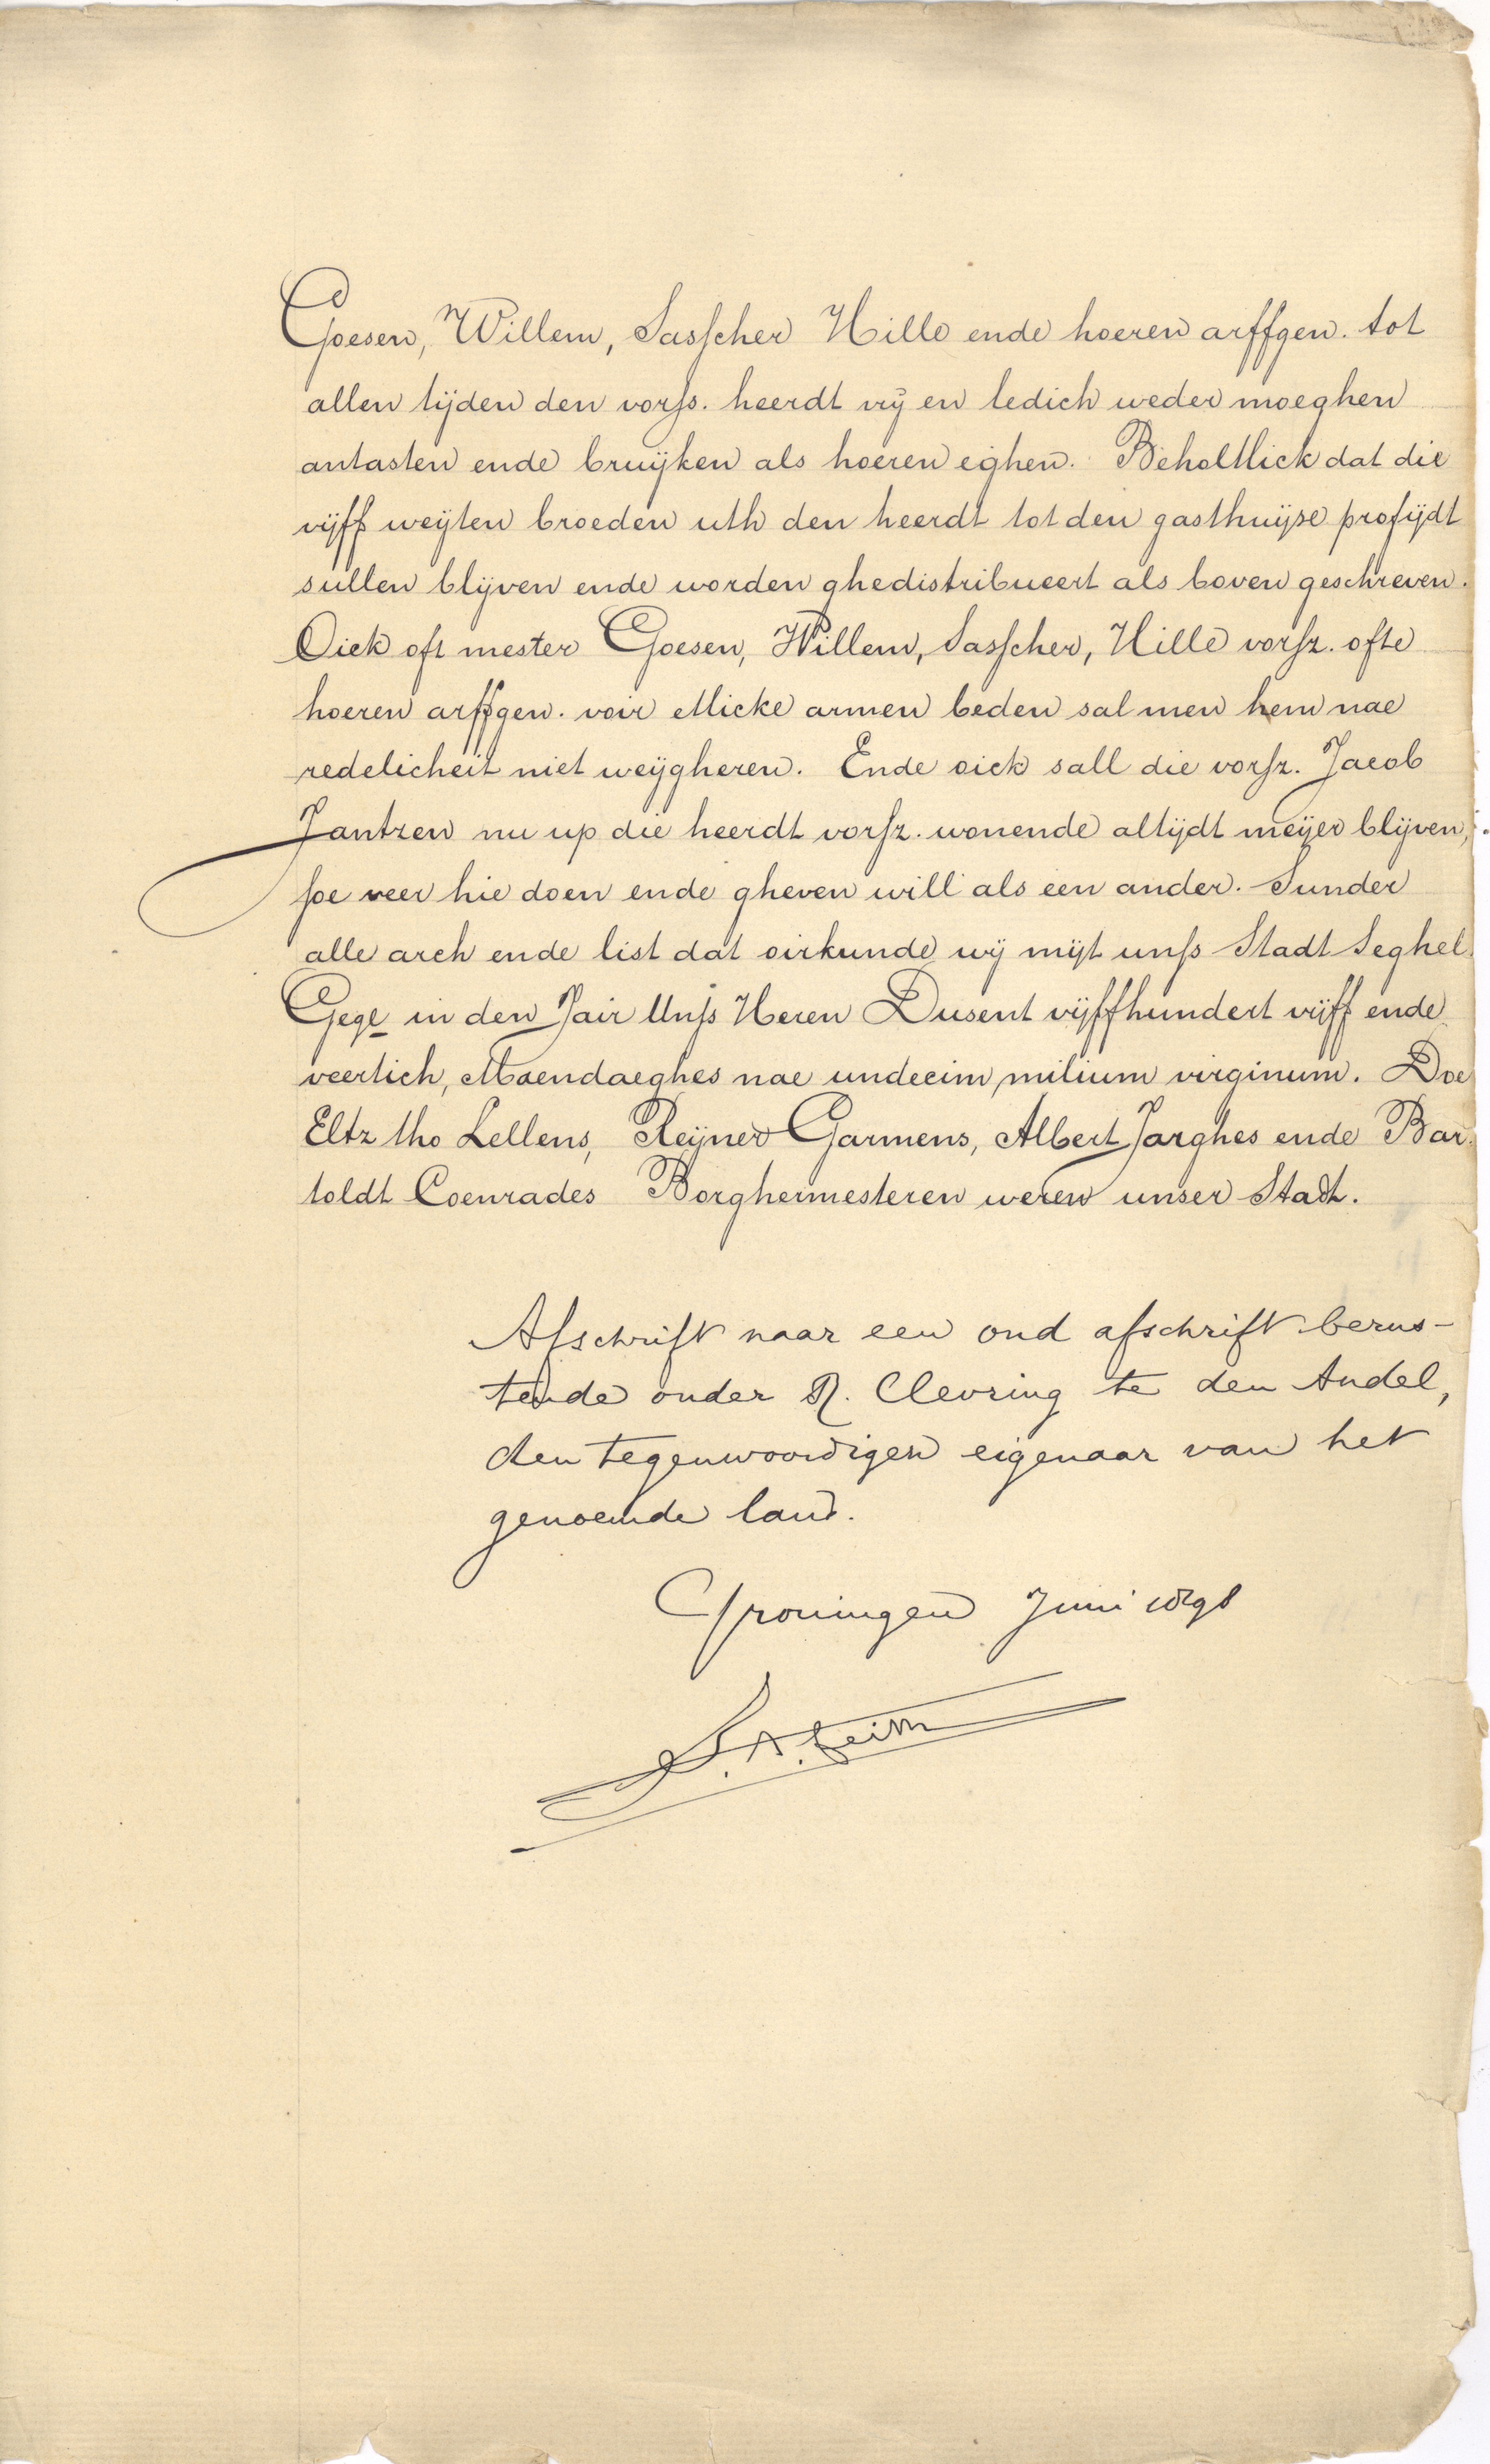 Goesen, Willem, Sasscher Hille ende hoeren arffgen. tot
allen tijden den vorss. heerdt vrij en ledich weder moeghen
antasten ende bruijken als hoeren eighen. Beholtlick dat die
vijff weijten broeden uth den heerdt tot den gasthuijse profijdt
sullen blijven ende worden ghedistribueert als boven geschreven.
Oick oft mester Goesen, Willem, Sasscher, Hille vorsz. ofte
hoeren arffgen. voir etlicke armen beden sal men hem nae
redelicheit niet weijgheren. Ende oick sall die vorsz. Jacob
Jantzen nu up die heerdt vorsz. wonende altijdt meijer blijven,
soe veer hie doen ende gheven will als een ander. Sunder
alle arch ende list dat oirkunde wij mijt unss Stadt Seghel.
Gege in den Jair Unss Heren Dusent vijffhundert vijff ende
veertich, Maendaeghes nae undecim milium virginum. Doe
Eltz tho Lellens, Reijner Garmens, Albert Jarghes ende Bar-
toldt Coenrades Borghermesteren weren unser Stadt.
Afschrift naar een oud afschrift berus-
tende onder R. Clevring te den Andel,
den tegenwoordigen eigenaar van het
genoemde land.
Groningen Juni 1898
J. A. Feith